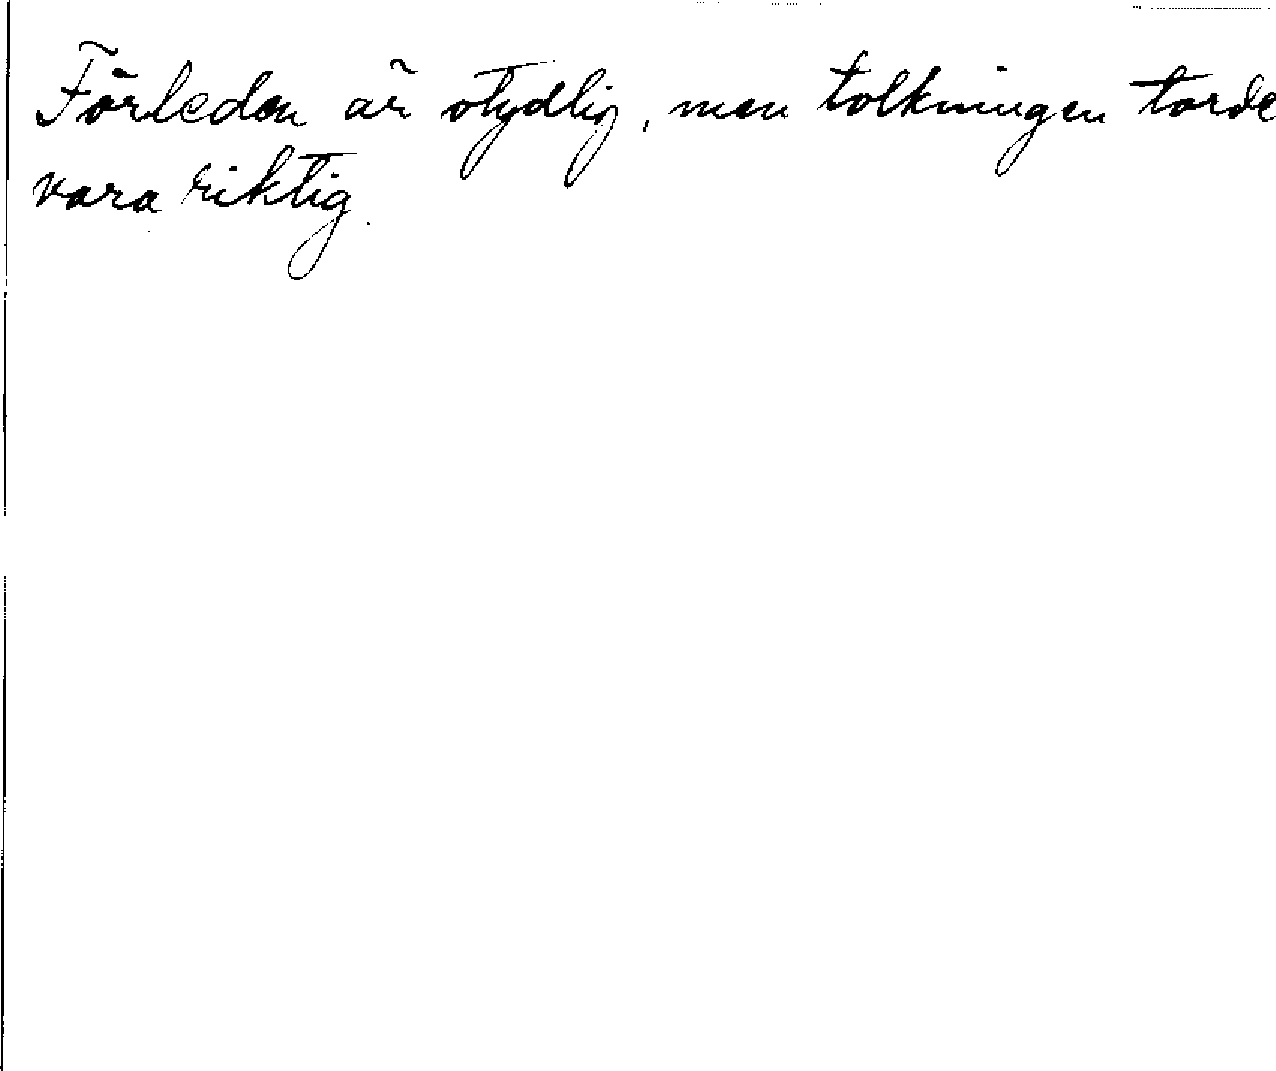 Förleden är otydlig, men tolkningen torde
vara riktig.